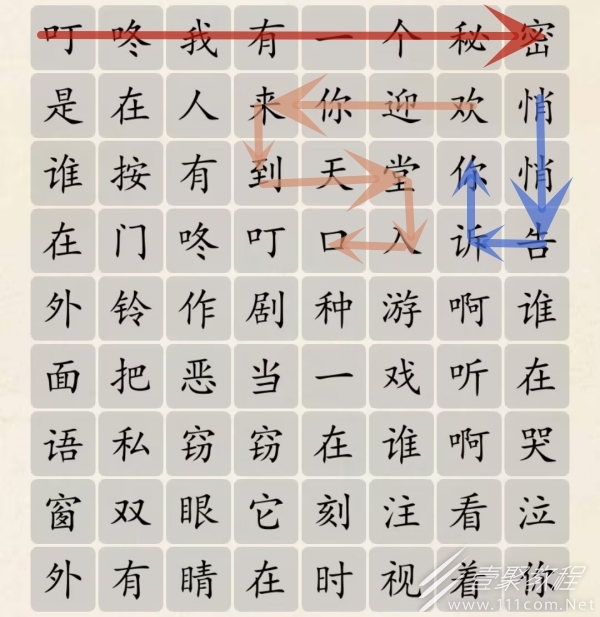 叮咚我有一个秘密
是在人来你迎欢悄
谁按有到天堂你悄
在门咚叮口入诉告
外铃作剧种游啊谁
面把恶当一戏听在
语私窃窃在谁啊哭
窗双眼它刻注看泣
外有睛在时视着你
壹聚教程
www.111com.Net